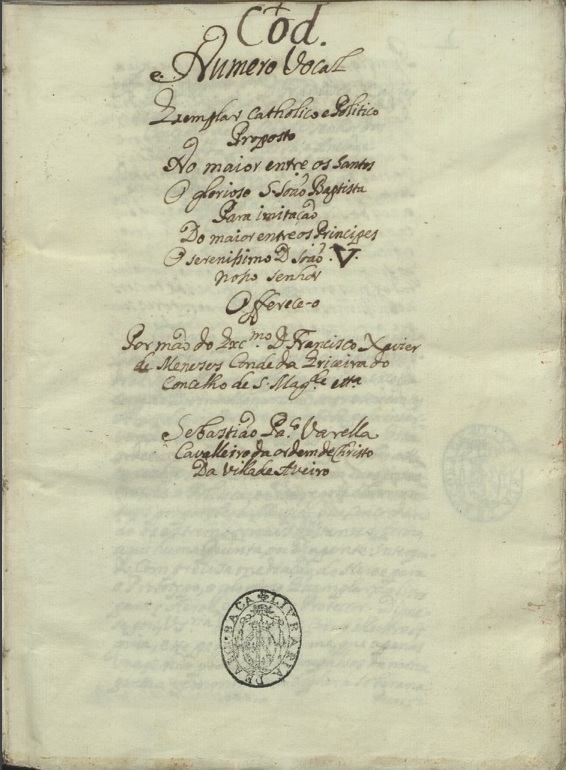 Cód.
Numero Vocal
Exemplar Catholico e Politico
Proposto
No maior entre os Santos
O glorioso S. João Baptista
Para imitação
Do maior entre os Principes
O serenissimo D. João V.
nosso senhor
Offerece-o
Por mão do Excmo. D. Francisco Xavier
de Meneses Conde da Ericeira do
Concelho de S. Magde etta.
Sebastião Pao. Varella
Cavalleiro da ordem de Christo
Da Villa de Aveiro
LIVRARIA